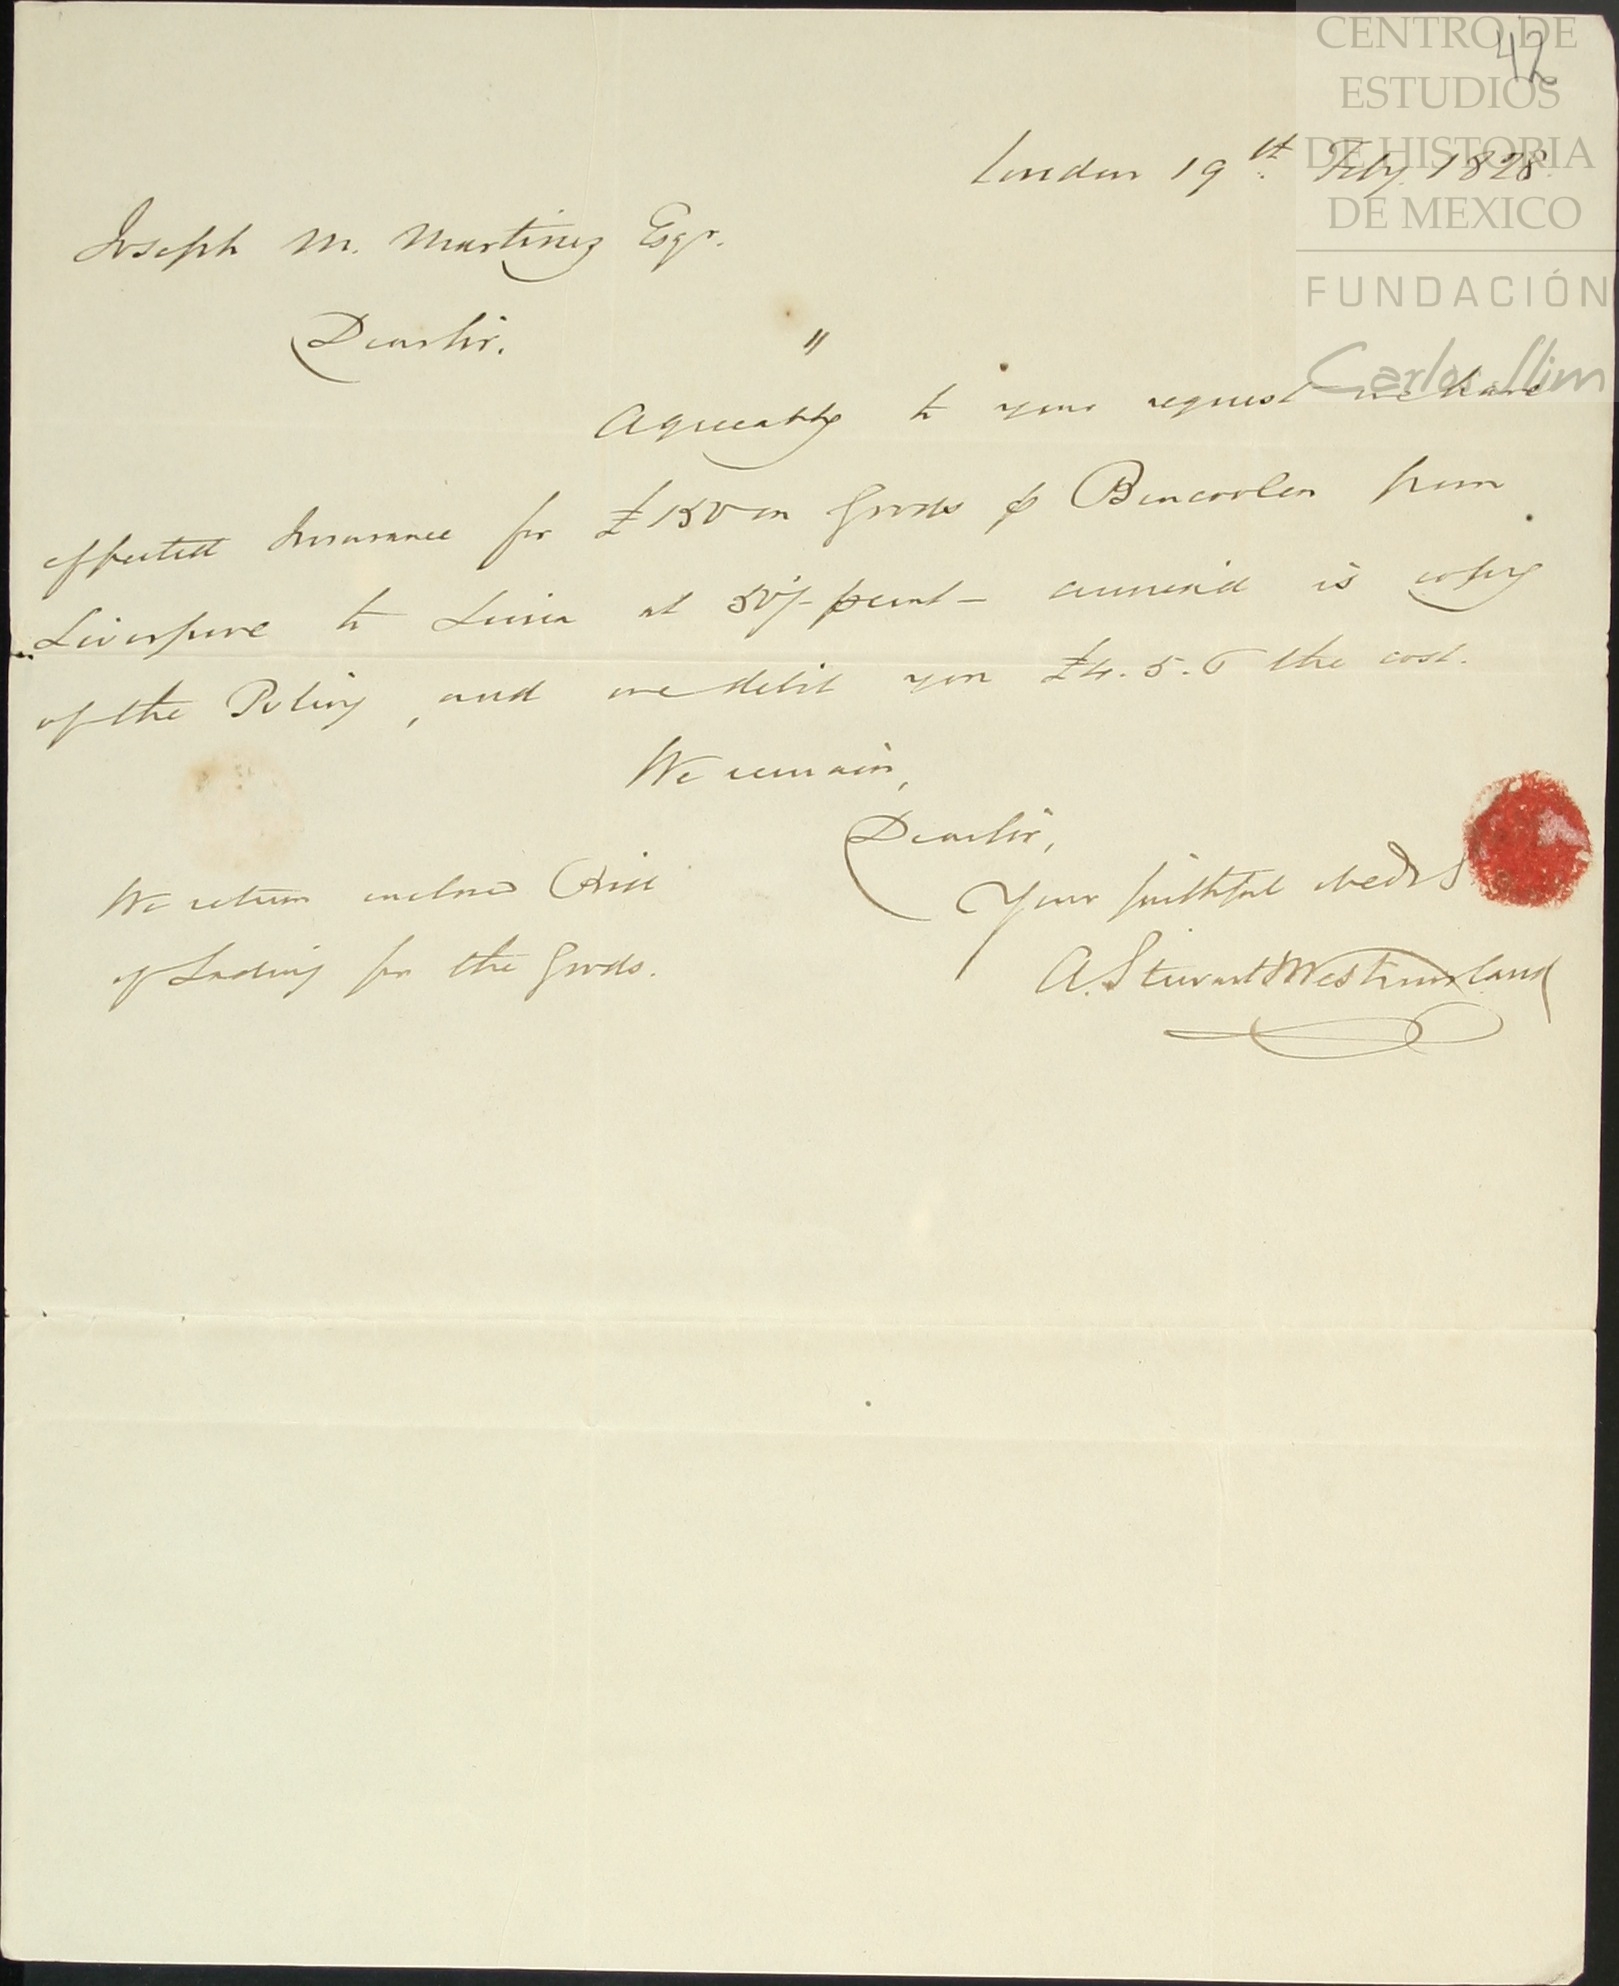 CENTRO DE
ESTUDIOS
DE HISTORIA
DE MEXICO
FUNDACIÓN
Carlos Slim
42
London 19th Feby. 1828.
Joseph M. Martinez Esqr.
Dear Sir. "
Agreeably to your request we have
effected Insurance for £150 on Goods p Bencoolen from
Liverpool to Lima at 50/- p cent - annexed is copy
of the Policy, and we debit you £4.5.6 the cost.
We remain,
Dear Sir,
Your faithful
We return inclosed Bill
of Lading for the Goods.
A. Stewart Westmorland